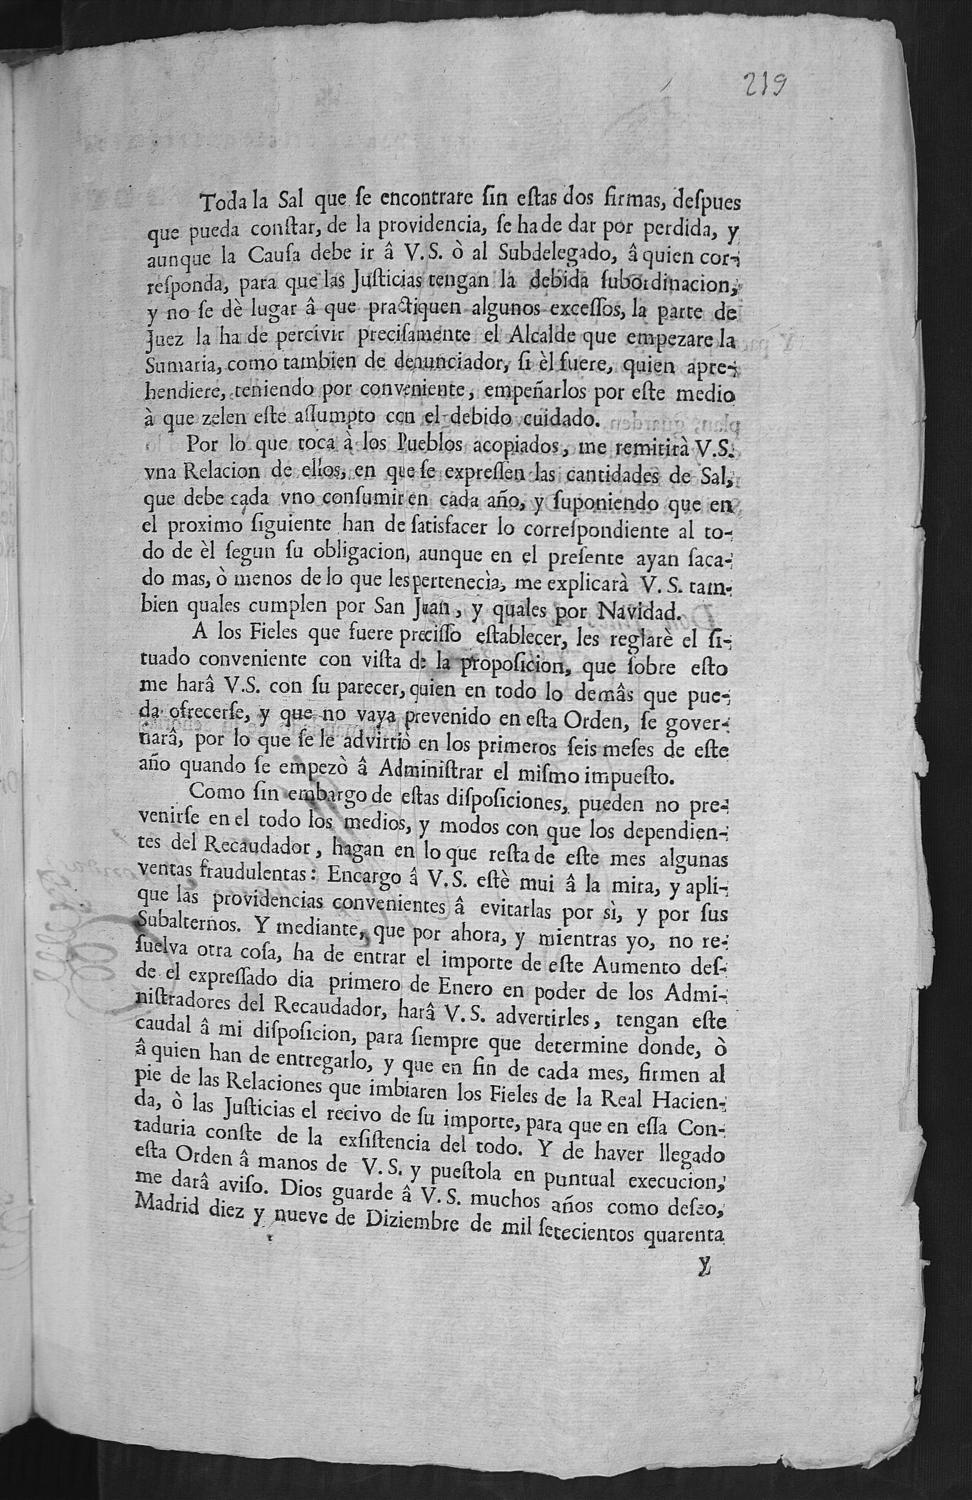 219
Toda la Sal que ſe encontrare ſin eſtas dos firmas, deſpues
que pueda conſtar, de la providencia, ſe ha de dar por perdida, y
aunque la Cauſa debe ir â V.S. ò al Subdelegado, â quien cor-
reſponda, para que las Juſticias tengan la debida ſubordinacion,
y no ſe dè lugar â que practiquen algunos exceſſos, la parte de
Juez la ha de percivir preciſamente el Alcalde que empezare la
Sumaria, como tambien de denunciador, ſi èl fuere, quien apre-
hendiere, teniendo por conveniente, empeñarlos por eſte medio
à que zelen eſte aſſumpto con el debido cuidado.
Por lo que toca à los Pueblos acopiados, me remitirà V.S.
vna Relacion de ellos, en que ſe expreſſen las cantidades de Sal,
que debe cada vno conſumir en cada año, y ſuponiendo que en
el proximo ſiguiente han de ſatisfacer lo correſpondiente al to-
do de èl ſegun ſu obligacion, aunque en el preſente ayan ſaca-
do mas, ò menos de lo que les pertenecìa, me explicarà V. S. tam-
bien quales cumplen por San Juan, y quales por Navidad.
A los Fieles que fuere preciſſo eſtablecer, les reglarè el ſi-
tuado conveniente con viſta de la propoſicion, que ſobre eſto
me harâ V.S. con ſu parecer, quien en todo lo demâs que pue-
da ofrecerſe, y que no vaya prevenido en eſta Orden, ſe gover-
narâ, por lo que ſe le advirtiò en los primeros ſeis meſes de eſte
año quando ſe empezò â Adminiſtrar el miſmo impueſto.
Como ſin embargo de eſtas diſpoſiciones, pueden no pre-
venirſe en el todo los medios, y modos con que los dependien-
tes del Recaudador, hagan en lo que reſta de eſte mes algunas
ventas fraudulentas: Encargo â V.S. eſtè mui â la mira, y apli-
que las providencias convenientes â evitarlas por sì, y por ſus
Subalternos. Y mediante, que por ahora, y mientras yo, no re-
ſuelva otra coſa, ha de entrar el importe de eſte Aumento deſ-
de el expreſſado dia primero de Enero en poder de los Admi-
niſtradores del Recaudador, harâ V.S. advertirles, tengan eſte
caudal â mi diſpoſicion, para ſiempre que determine donde, ò
â quien han de entregarlo, y que en fin de cada mes, firmen al
pie de las Relaciones que imbiaren los Fieles de la Real Hacien-
da, ò las Juſticias el recivo de ſu importe, para que en eſſa Con-
taduria conſte de la exſiſtencia del todo. Y de haver llegado
eſta Orden â manos de V. S. y pueſtola en puntual execucion,
me darâ aviſo. Dios guarde â V.S. muchos años como deſeo,
Madrid diez y nueve de Diziembre de mil ſetecientos quarenta
y